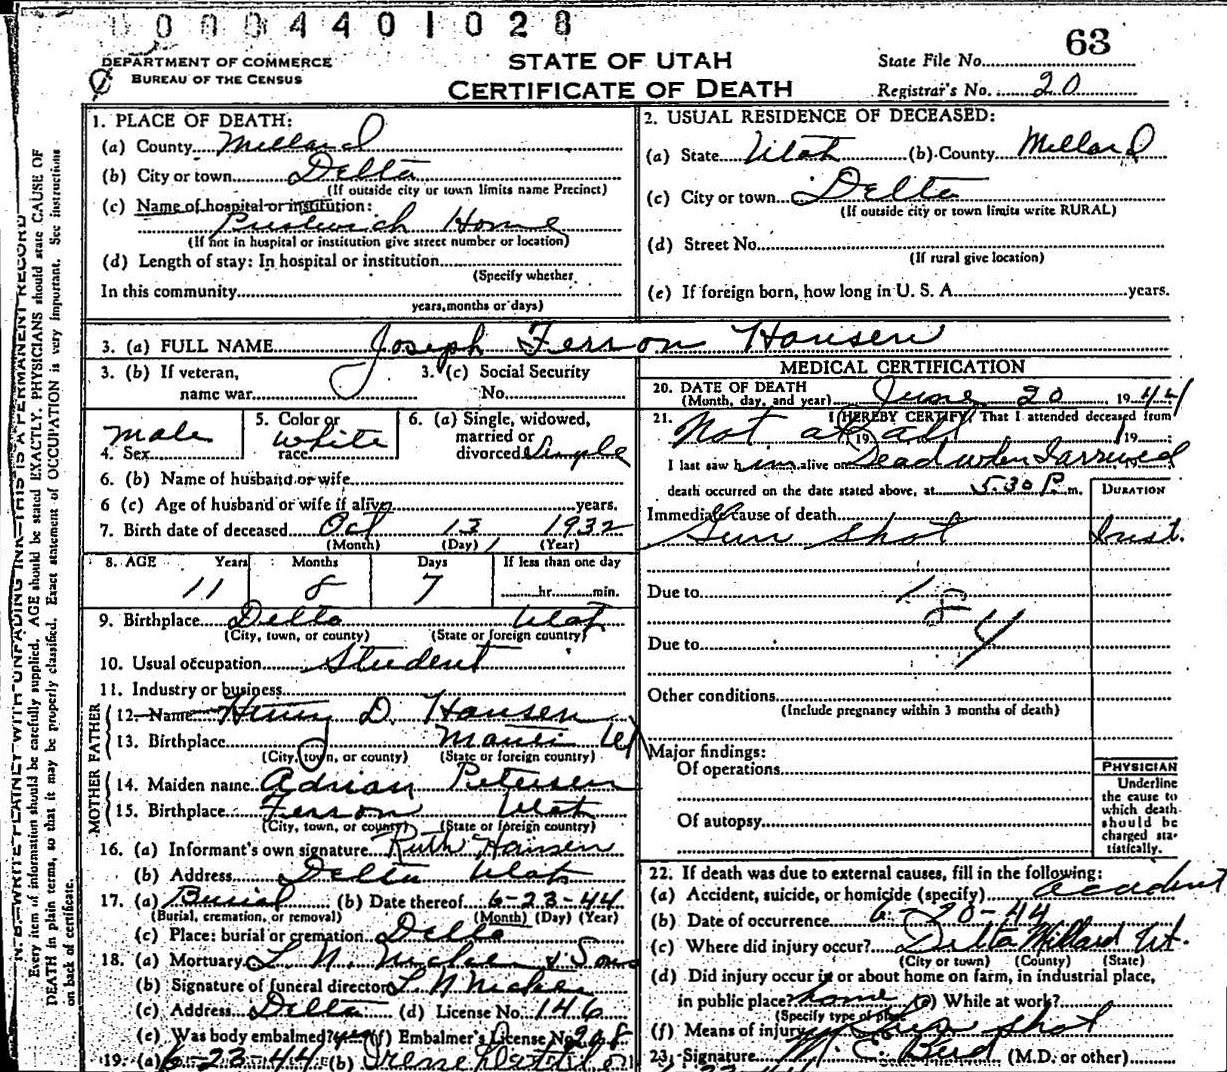 00004401028
63
DEPARTMENT OF COMMERCE
BUREAU OF THE CENSUS
STATE OF UTAH
CERTIFICATE OF DEATH
State File No.
Registrar's No. 20
N. B.—WRITE PLAINLY WITH UNFADING INK—THIS IS A PERMANENT RECORD
Every item of information should be carefully supplied. AGE should be stated EXACTLY. PHYSICIANS should state CAUSE OF
DEATH in plain terms, so that it may be properly classified. Exact statement of OCCUPATION is very important. See instructions
on back of certificate.
1. PLACE OF DEATH:
(a) County Millard
(b) City or town Delta
(If outside city or town limits name Precinct)
(c) Name of hospital or institution:
Home
(If not in hospital or institution give street number or location)
(d) Length of stay: In hospital or institution
(Specify whether
In this community
years, months or days)
2. USUAL RESIDENCE OF DECEASED:
(a) State Utah (b) County Millard
(c) City or town Delta
(If outside city or town limits write RURAL)
(d) Street No.
(If rural give location)
(e) If foreign born, how long in U. S. A. years.
3. (a) FULL NAME Joseph Ferron Hansen
3. (b) If veteran,
name war
3. (c) Social Security
No.
4. Sex male
5. Color or
race white
6. (a) Single, widowed,
married or
divorced Single
6. (b) Name of husband or wife
6 (c) Age of husband or wife if alive years.
7. Birth date of deceased Oct 13 1932
(Month) (Day) (Year)
8. AGE Years Months Days If less than one day
11 8 7 hr. min.
9. Birthplace Delta Utah
(City, town, or county) (State or foreign country)
10. Usual occupation Student
11. Industry or business
FATHER
12. Name Henry D. Hansen
13. Birthplace Manti Ut
(City, town, or county) (State or foreign country)
MOTHER
14. Maiden name Adrian Petersen
15. Birthplace Ferron Utah
(City, town, or county) (State or foreign country)
16. (a) Informant's own signature Ruth Hansen
(b) Address Delta Utah
17. (a) Burial (b) Date thereof 6-23-44
(Burial, cremation, or removal) (Month) (Day) (Year)
(c) Place: burial or cremation Delta
18. (a) Mortuary & Sons
(b) Signature of funeral director
(c) Address Delta (d) License No. 146
(e) Was body embalmed? yes (f) Embalmer's License No. 208
19. (a) 6-23-44 (b) Irene
MEDICAL CERTIFICATION
20. DATE OF DEATH
(Month, day, and year) June 20 1944
21. I HEREBY CERTIFY, That I attended deceased from
Not at all 19 19
I last saw him alive on Dead when I arrived
death occurred on the date stated above, at 5.30 P. m.
DURATION
Immediate cause of death
Gun shot Inst.
Due to 184
Due to
Other conditions
(Include pregnancy within 3 months of death)
Major findings:
Of operations
Of autopsy
PHYSICIAN
Underline
the cause to
which death
should be
charged sta-
tistically.
22. If death was due to external causes, fill in the following:
(a) Accident, suicide, or homicide (specify) accident
(b) Date of occurrence 6-20-44
(c) Where did injury occur? Delta Millard Ut.
(City or town) (County) (State)
(d) Did injury occur in or about home on farm, in industrial place,
in public place? home (e) While at work?
(Specify type of place)
(f) Means of injury Gun shot
23. Signature M E Bird (M.D. or other)